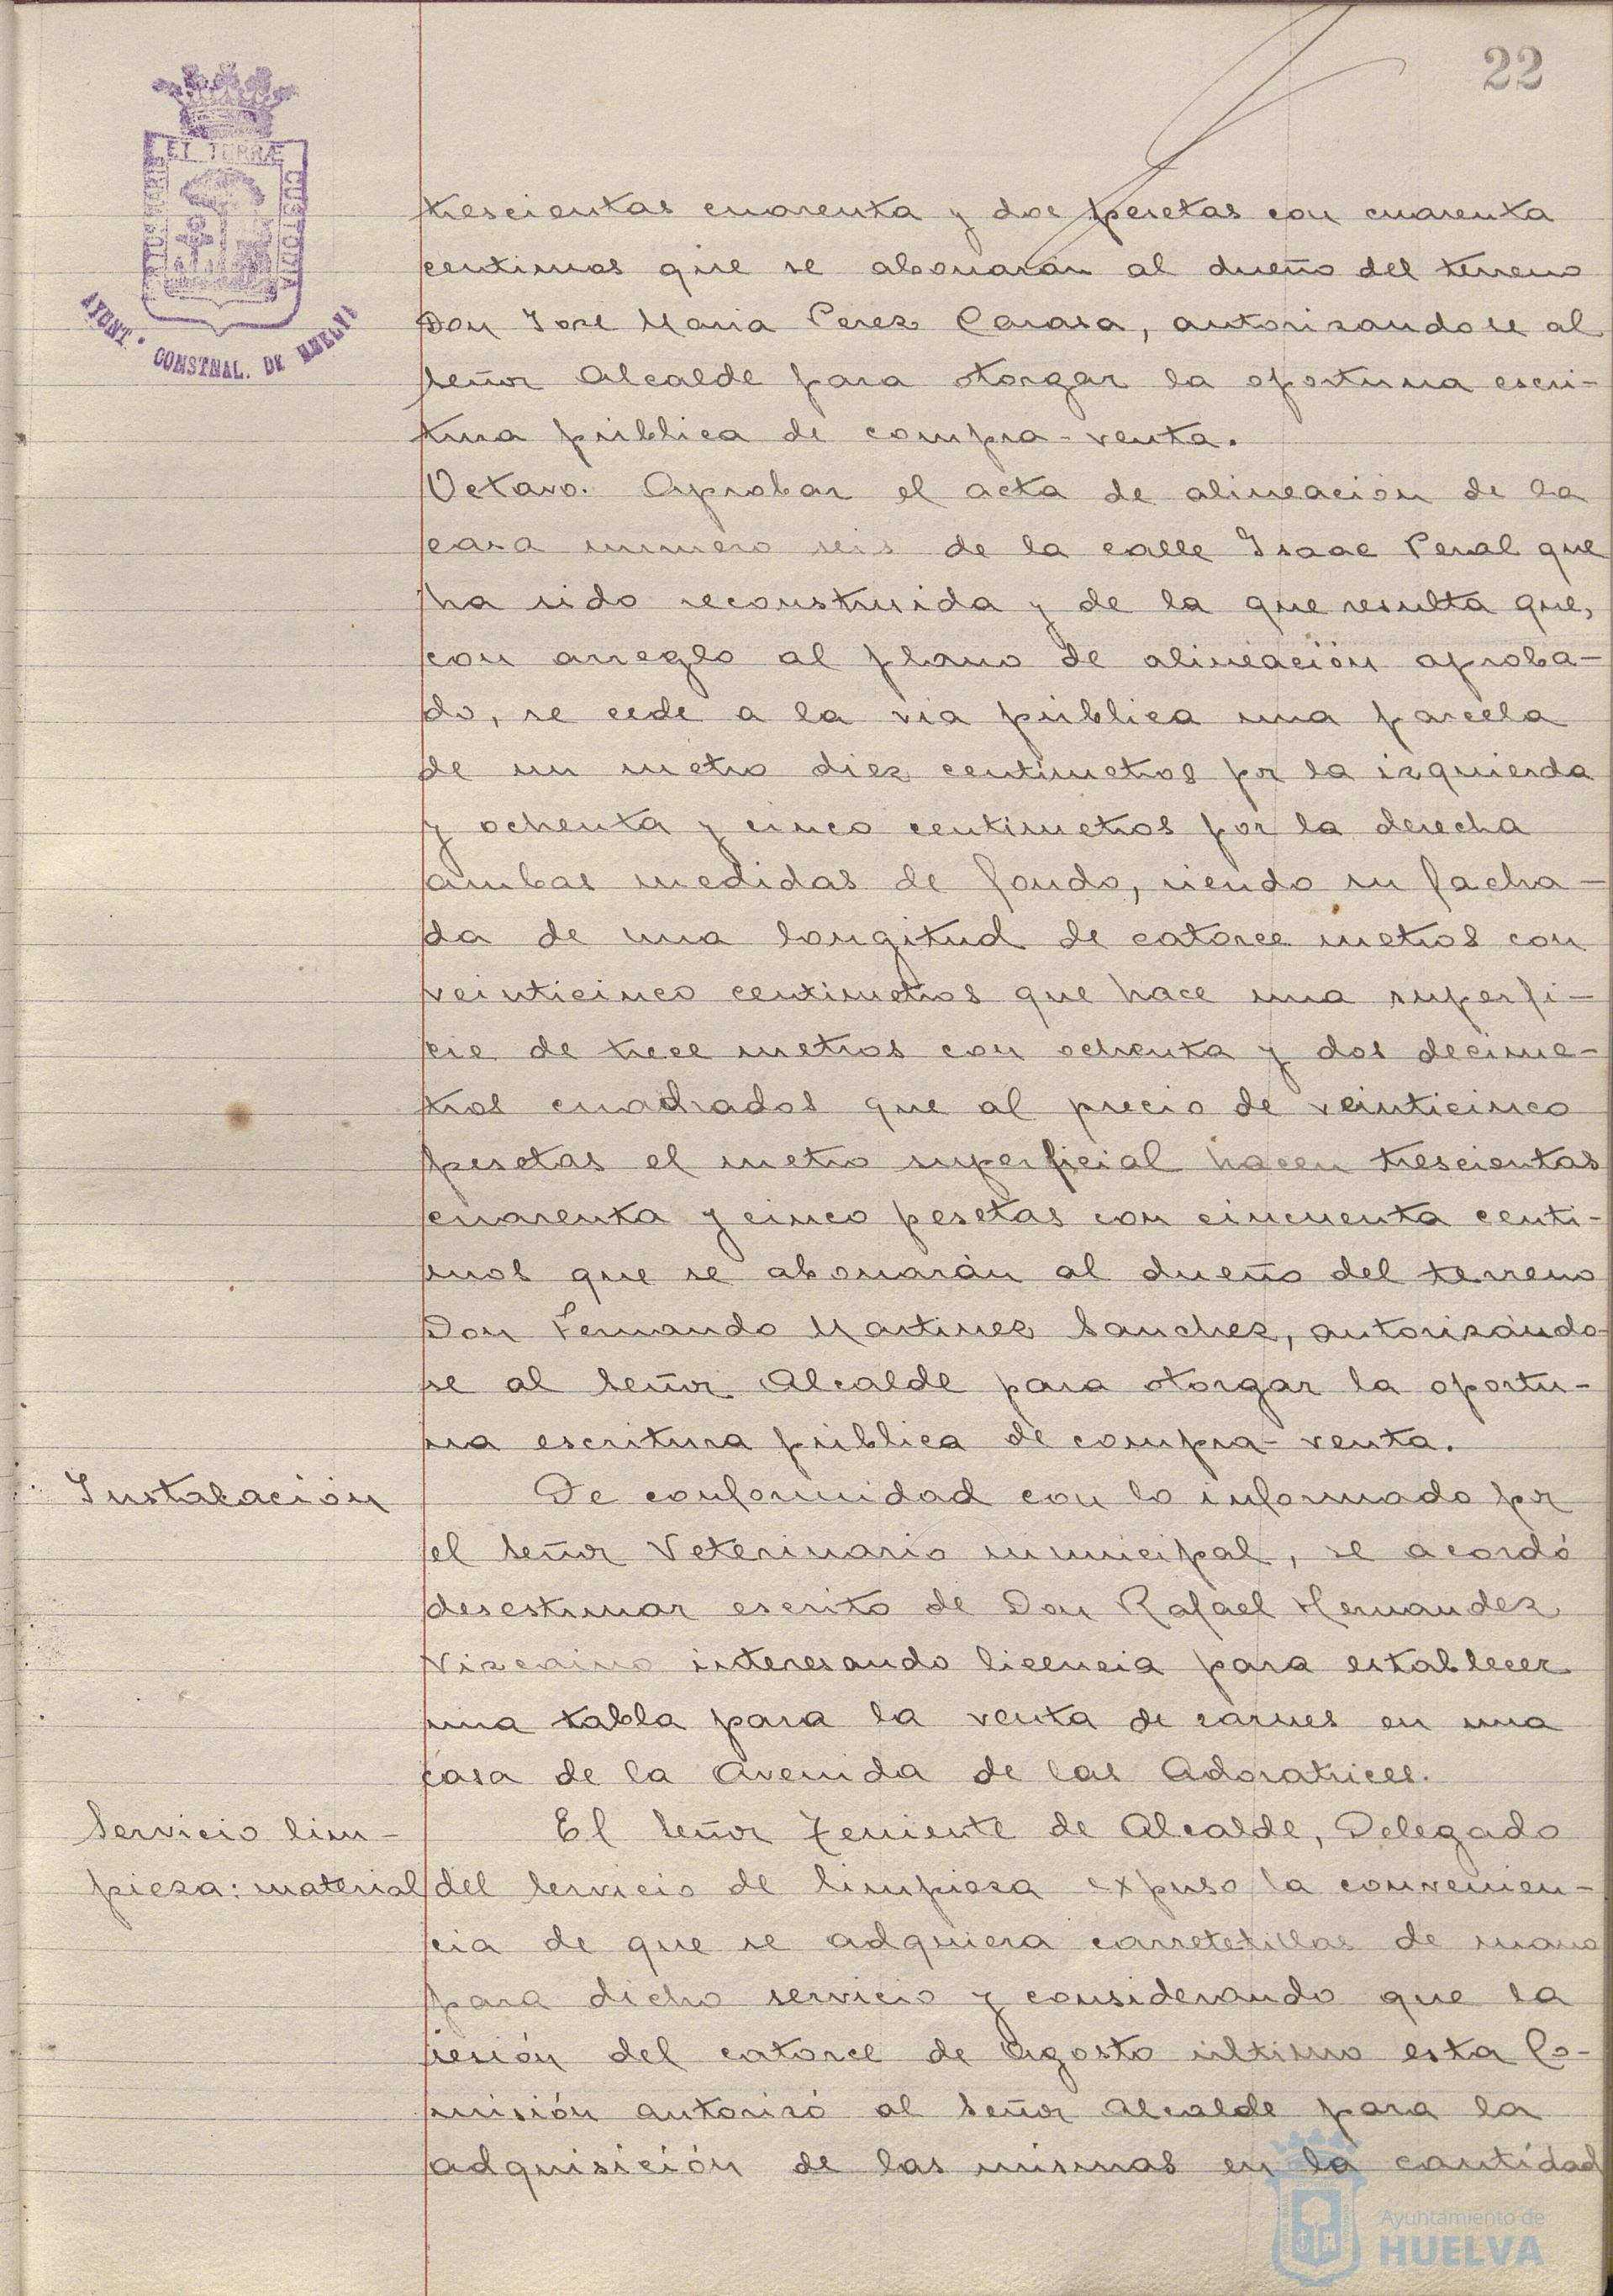 22
PORTUS MARIS
ET TERRÆ
CUSTODIA
AYUNT. CONSTNAL. DE HUELVA
trescientas cuarenta y dos pesetas con cuarenta
centimos que se abonarán al dueño del terreno
Don José Maria Perez Carasa, autorizandose al
Señor Alcalde para otorgar la oportuna escri-
tura pública de compra-venta.
Octavo. Aprobar el acta de alineación de la
casa numero seis de la calle Isaac Peral que
ha sido reconstruida y de la que resulta que,
con arreglo al plano de alineación aproba-
do, se cede a la via pública una parcela
de un metro diez centimetros por la izquierda
y ochenta y cinco centimetros por la derecha
ambas medidas de fondo, siendo su facha-
da de una longitud de catorce metros con
veinticinco centimetros que hace una superfi-
cie de trece metros con ochenta y dos decime-
tros cuadrados que al precio de veinticinco
pesetas el metro superficial hacen trescientas
cuarenta y cinco pesetas con cincuenta centi-
mos que se abonarán al dueño del terreno
Don Fernando Martinez Sanchez, autorizándo-
se al Señor Alcalde para otorgar la oportu-
na escritura pública de compra-venta.
Instalación
De conformidad con lo informado por
el Señor Veterinario municipal, se acordó
desestimar escrito de Don Rafael Hernandez
Vizcaino interesando licencia para establecer
una tabla para la venta de carnes en una
casa de la Avenida de las Adoratrices.
Servicio lim-
pieza: material
El Señor Teniente de Alcalde, Delegado
del Servicio de limpieza expuso la convenien-
cia de que se adquiera carretetillas de mano
para dicho servicio y considerando que la
sesión del catorce de Agosto último esta Co-
misión autorizó al Señor Alcalde para la
adquisición de las mismas en la cantidad
Ayuntamiento de
HUELVA